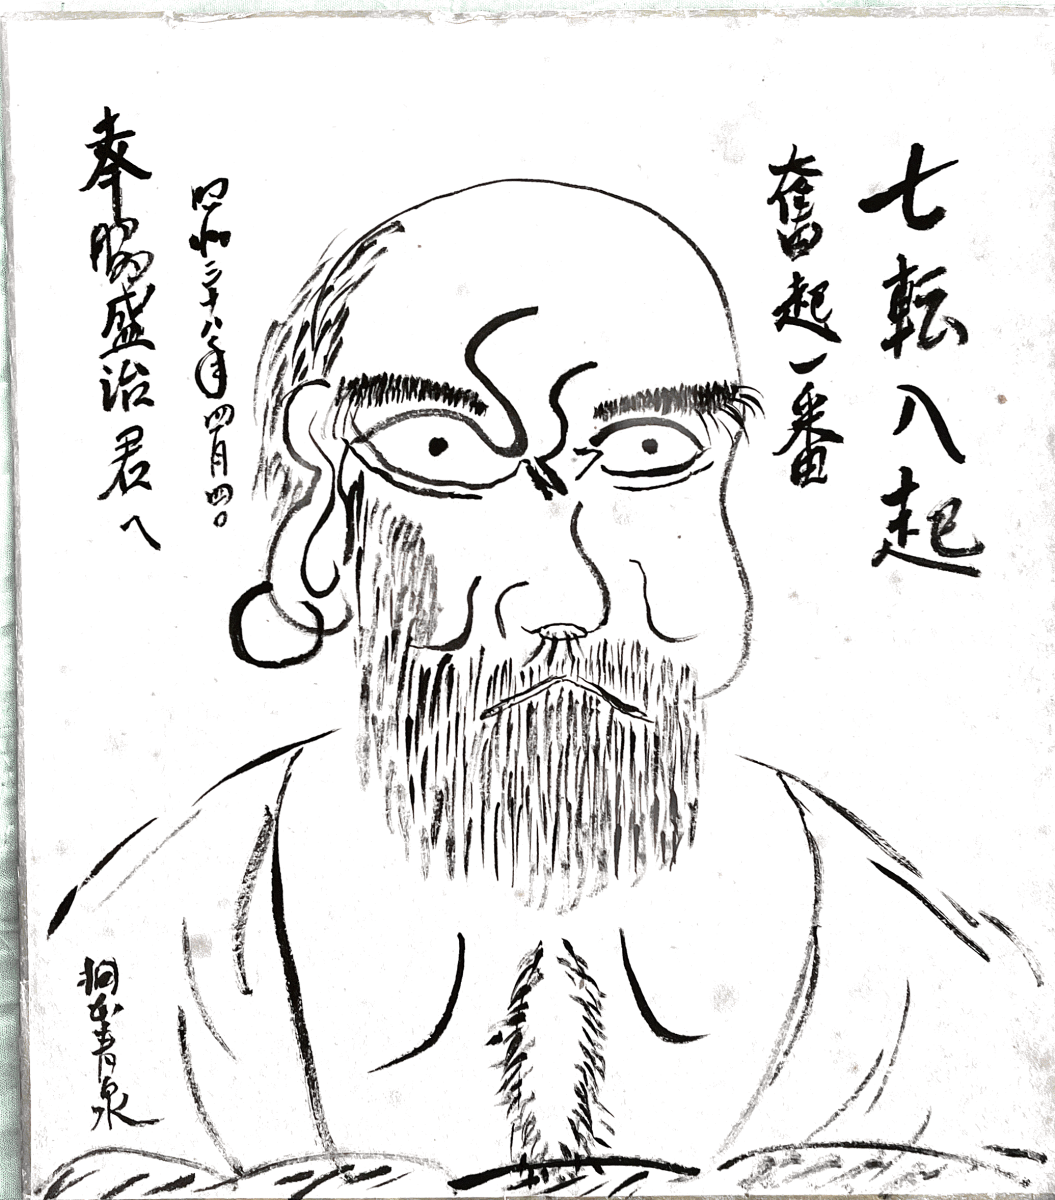 七転八起
奮起一番
昭和三十八年四月四日
奉脇盛治君へ
桐本青泉